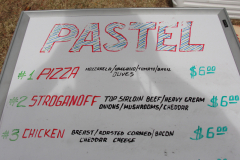 PASTEL
#1 PIZZA MOZZARELLA/OREGANO/TOMATO/BASIL $6.00
OLIVES
#2 STROGANOFF TOP SIRLOIN BEEF/HEAVY CREAM $6.00
ONIONS/MUSHROOMS/CHEDDAR
#3 CHICKEN BREAST/ROASTED CORNED/BACON $6.00
CHEDDAR CHEESE